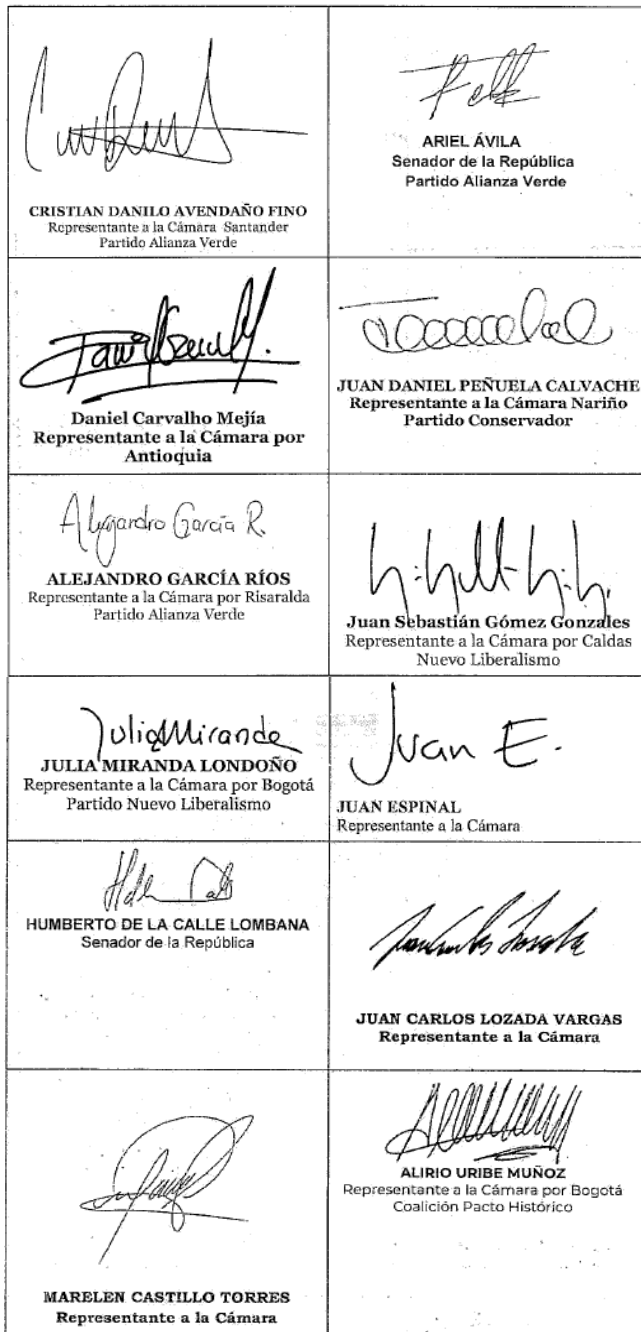 CRISTIAN DANILO AVENDAÑO FINO
Representante a la Cámara Santander
Partido Alianza Verde
ARIEL ÁVILA
Senador de la República
Partido Alianza Verde
Daniel Carvalho Mejía
Representante a la Cámara por
Antioquia
JUAN DANIEL PEÑUELA CALVACHE
Representante a la Cámara Nariño
Partido Conservador
Alejandro García R.
ALEJANDRO GARCÍA RÍOS
Representante a la Cámara por Risaralda
Partido Alianza Verde
Juan Sebastián Gómez Gonzales
Representante a la Cámara por Caldas
Nuevo Liberalismo
Julia Miranda
JULIA MIRANDA LONDOÑO
Representante a la Cámara por Bogotá
Partido Nuevo Liberalismo
Juan E.
JUAN ESPINAL
Representante a la Cámara
HUMBERTO DE LA CALLE LOMBANA
Senador de la República
JUAN CARLOS LOZADA VARGAS
Representante a la Cámara
MARELEN CASTILLO TORRES
Representante a la Cámara
ALIRIO URIBE MUÑOZ
Representante a la Cámara por Bogotá
Coalición Pacto Histórico